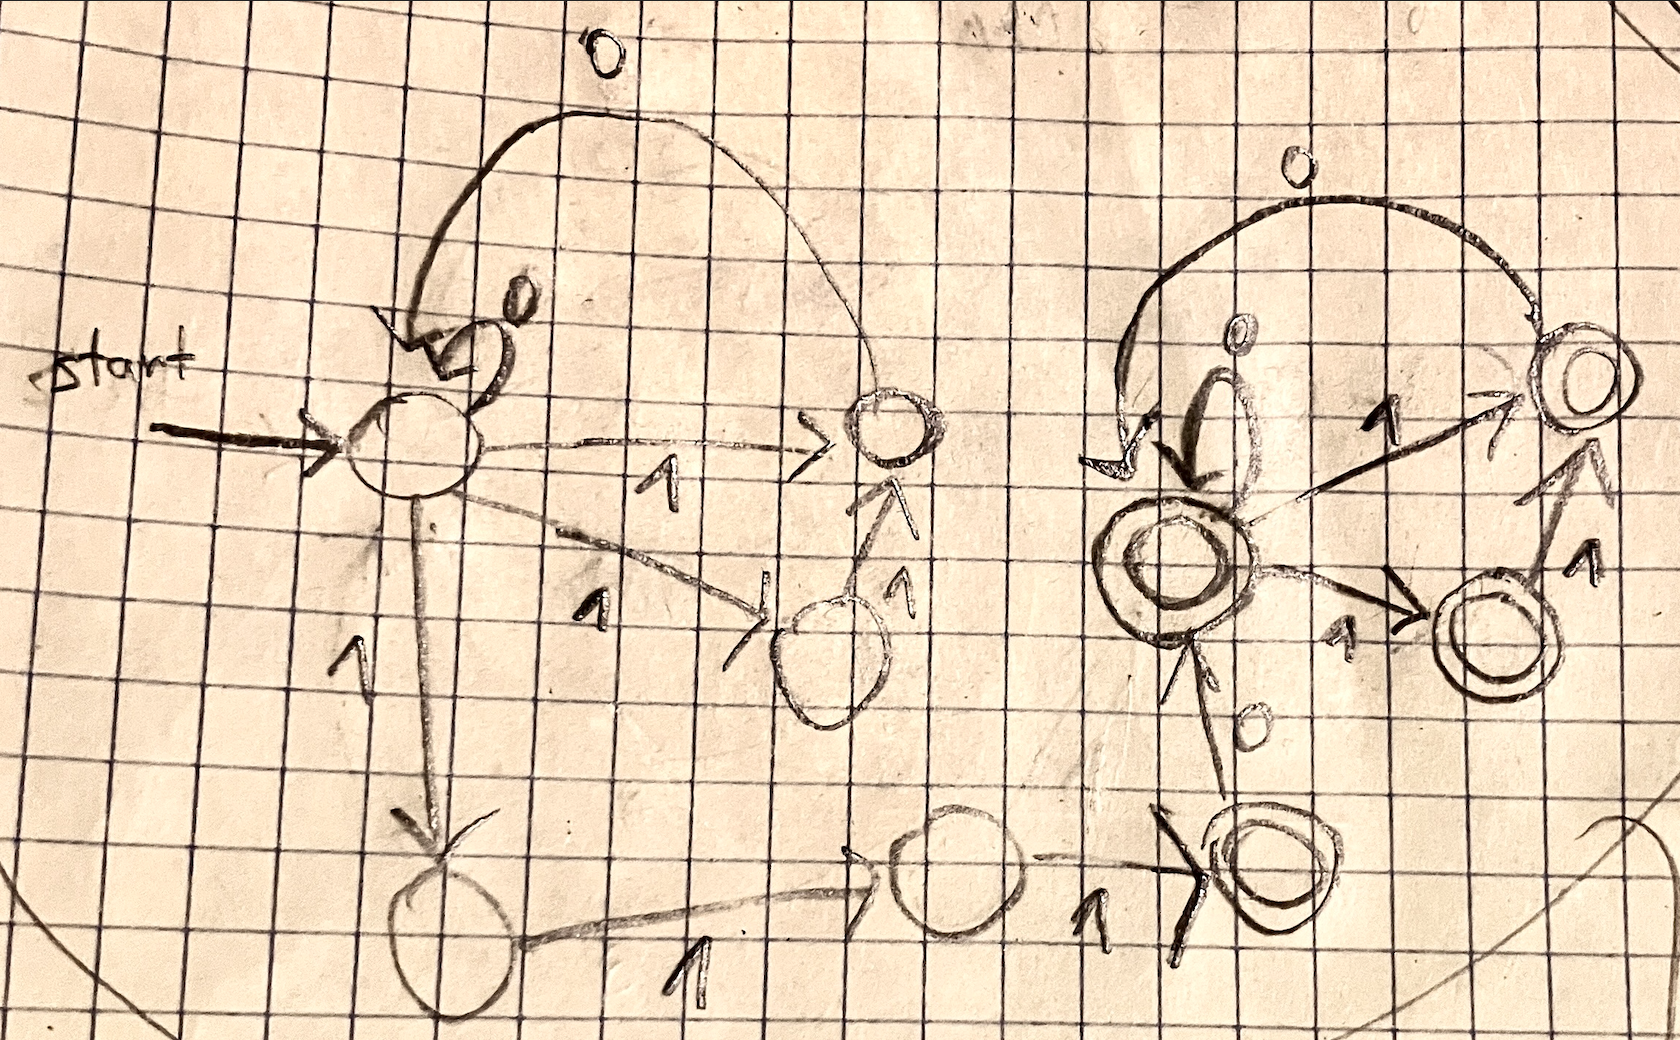 0
0
0
0
start
1
1
1
1
1
1
1
1
0
1
1